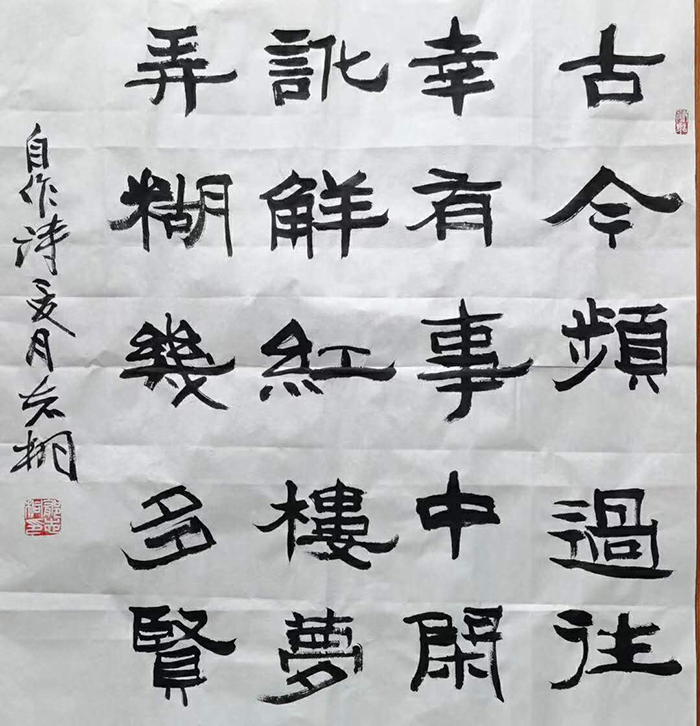 古今頻過往
幸有事中閑
訛解紅樓夢
弄糊幾多賢
自作詩夏月志栩